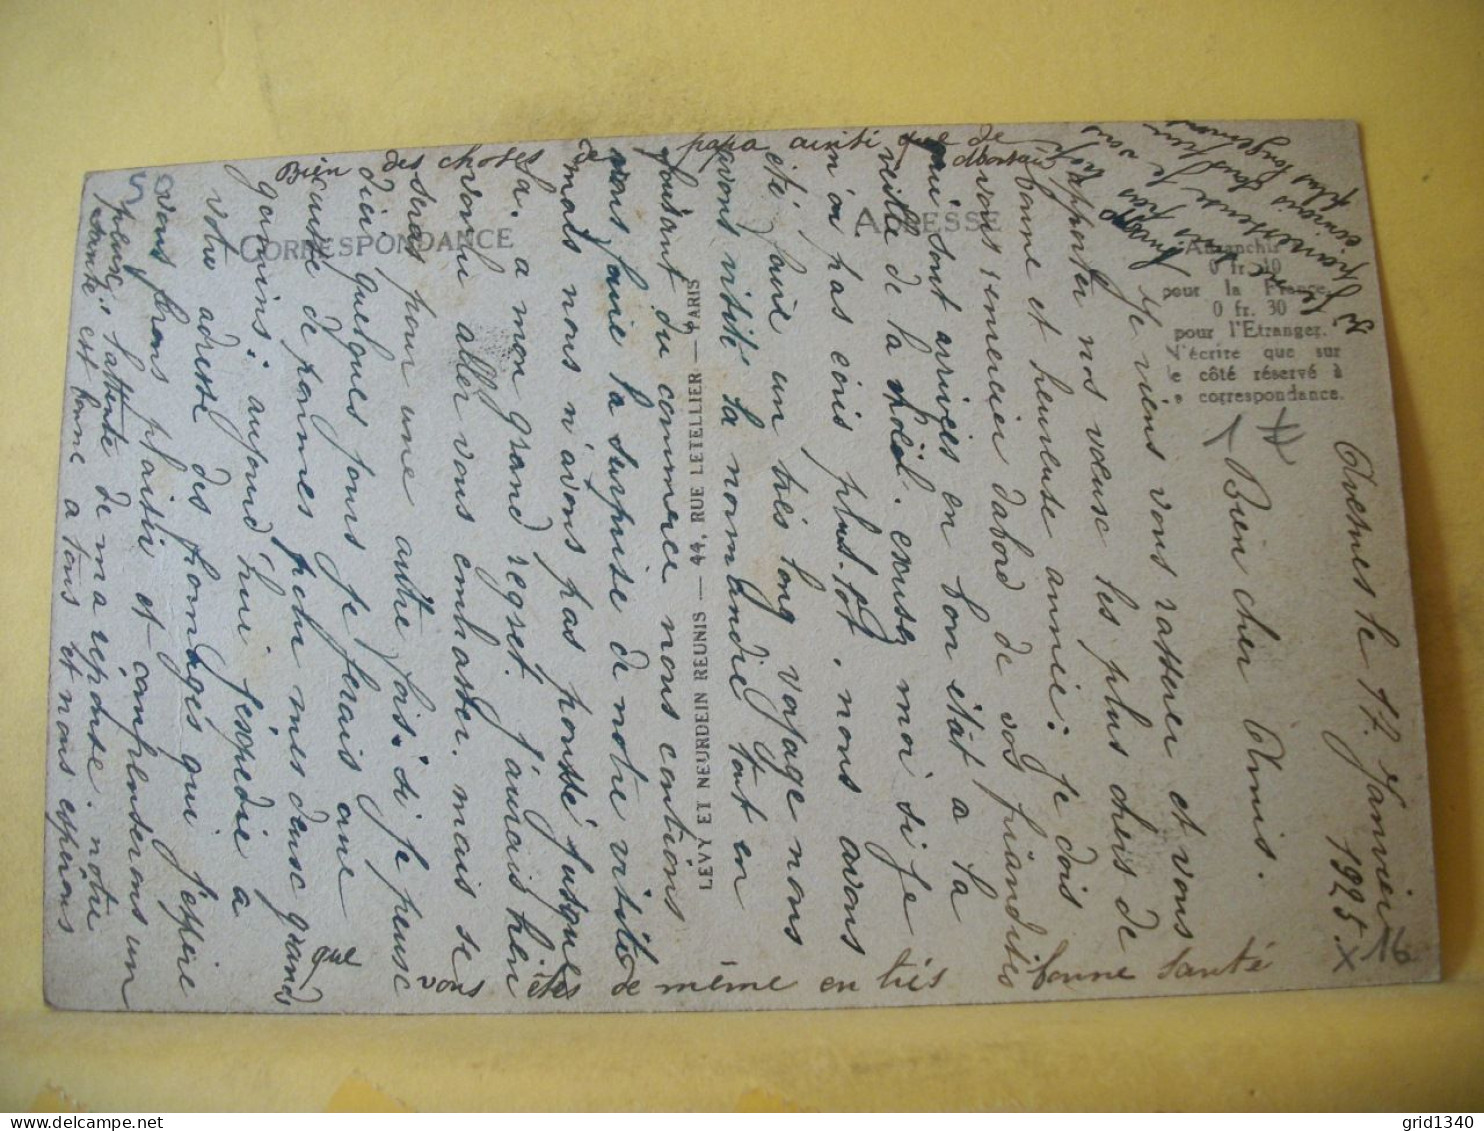 le 17 Janvier
1925
Bien cher Amis.
Je viens vous rassurer et vous
apporter nos vœusc les plus chers de
bonne et heureuse année : Je dois
vous remercier dabord de vos friandises
qui sont arrivées en bon état a la
veille de la Noël. excusez moi si je
n'ai pas écris plus tôt. nous avons
été faire un très long voyage nous
avons visité la normandie tout en
faisant du commerce nous contions
vous faire la surprise de notre visite
mais nous n'avons pas poussé jusque
la. a mon grand regret. j'aurais bien
voulu aller vous embrasser. mais se
seras pour une autre fois. si je peusc
dici quelques jours je ferais une
caisse de pommes pour mes deusc grands
gamins : aujourd'hui j'éscpedie a
votre adresse des fromages qui j'espère
vous ferons plaisir et complterons un
peusc l'attente de ma réponse. nôtre
santé est bonne a tous et nous espérons
que
vous êtes de même en très bonne santé
Bien des choses de papa ainsi que de
CORRESPONDANCE
ADRESSE
Affranchir
0 fr. 10
pour la France,
0 fr. 30
pour l'Etranger.
N'écrire que sur
le côté réservé à
la correspondance.
LÉVY ET NEURDEIN RÉUNIS — 44, RUE LETELLIER — PARIS
5
1
16
grid1340